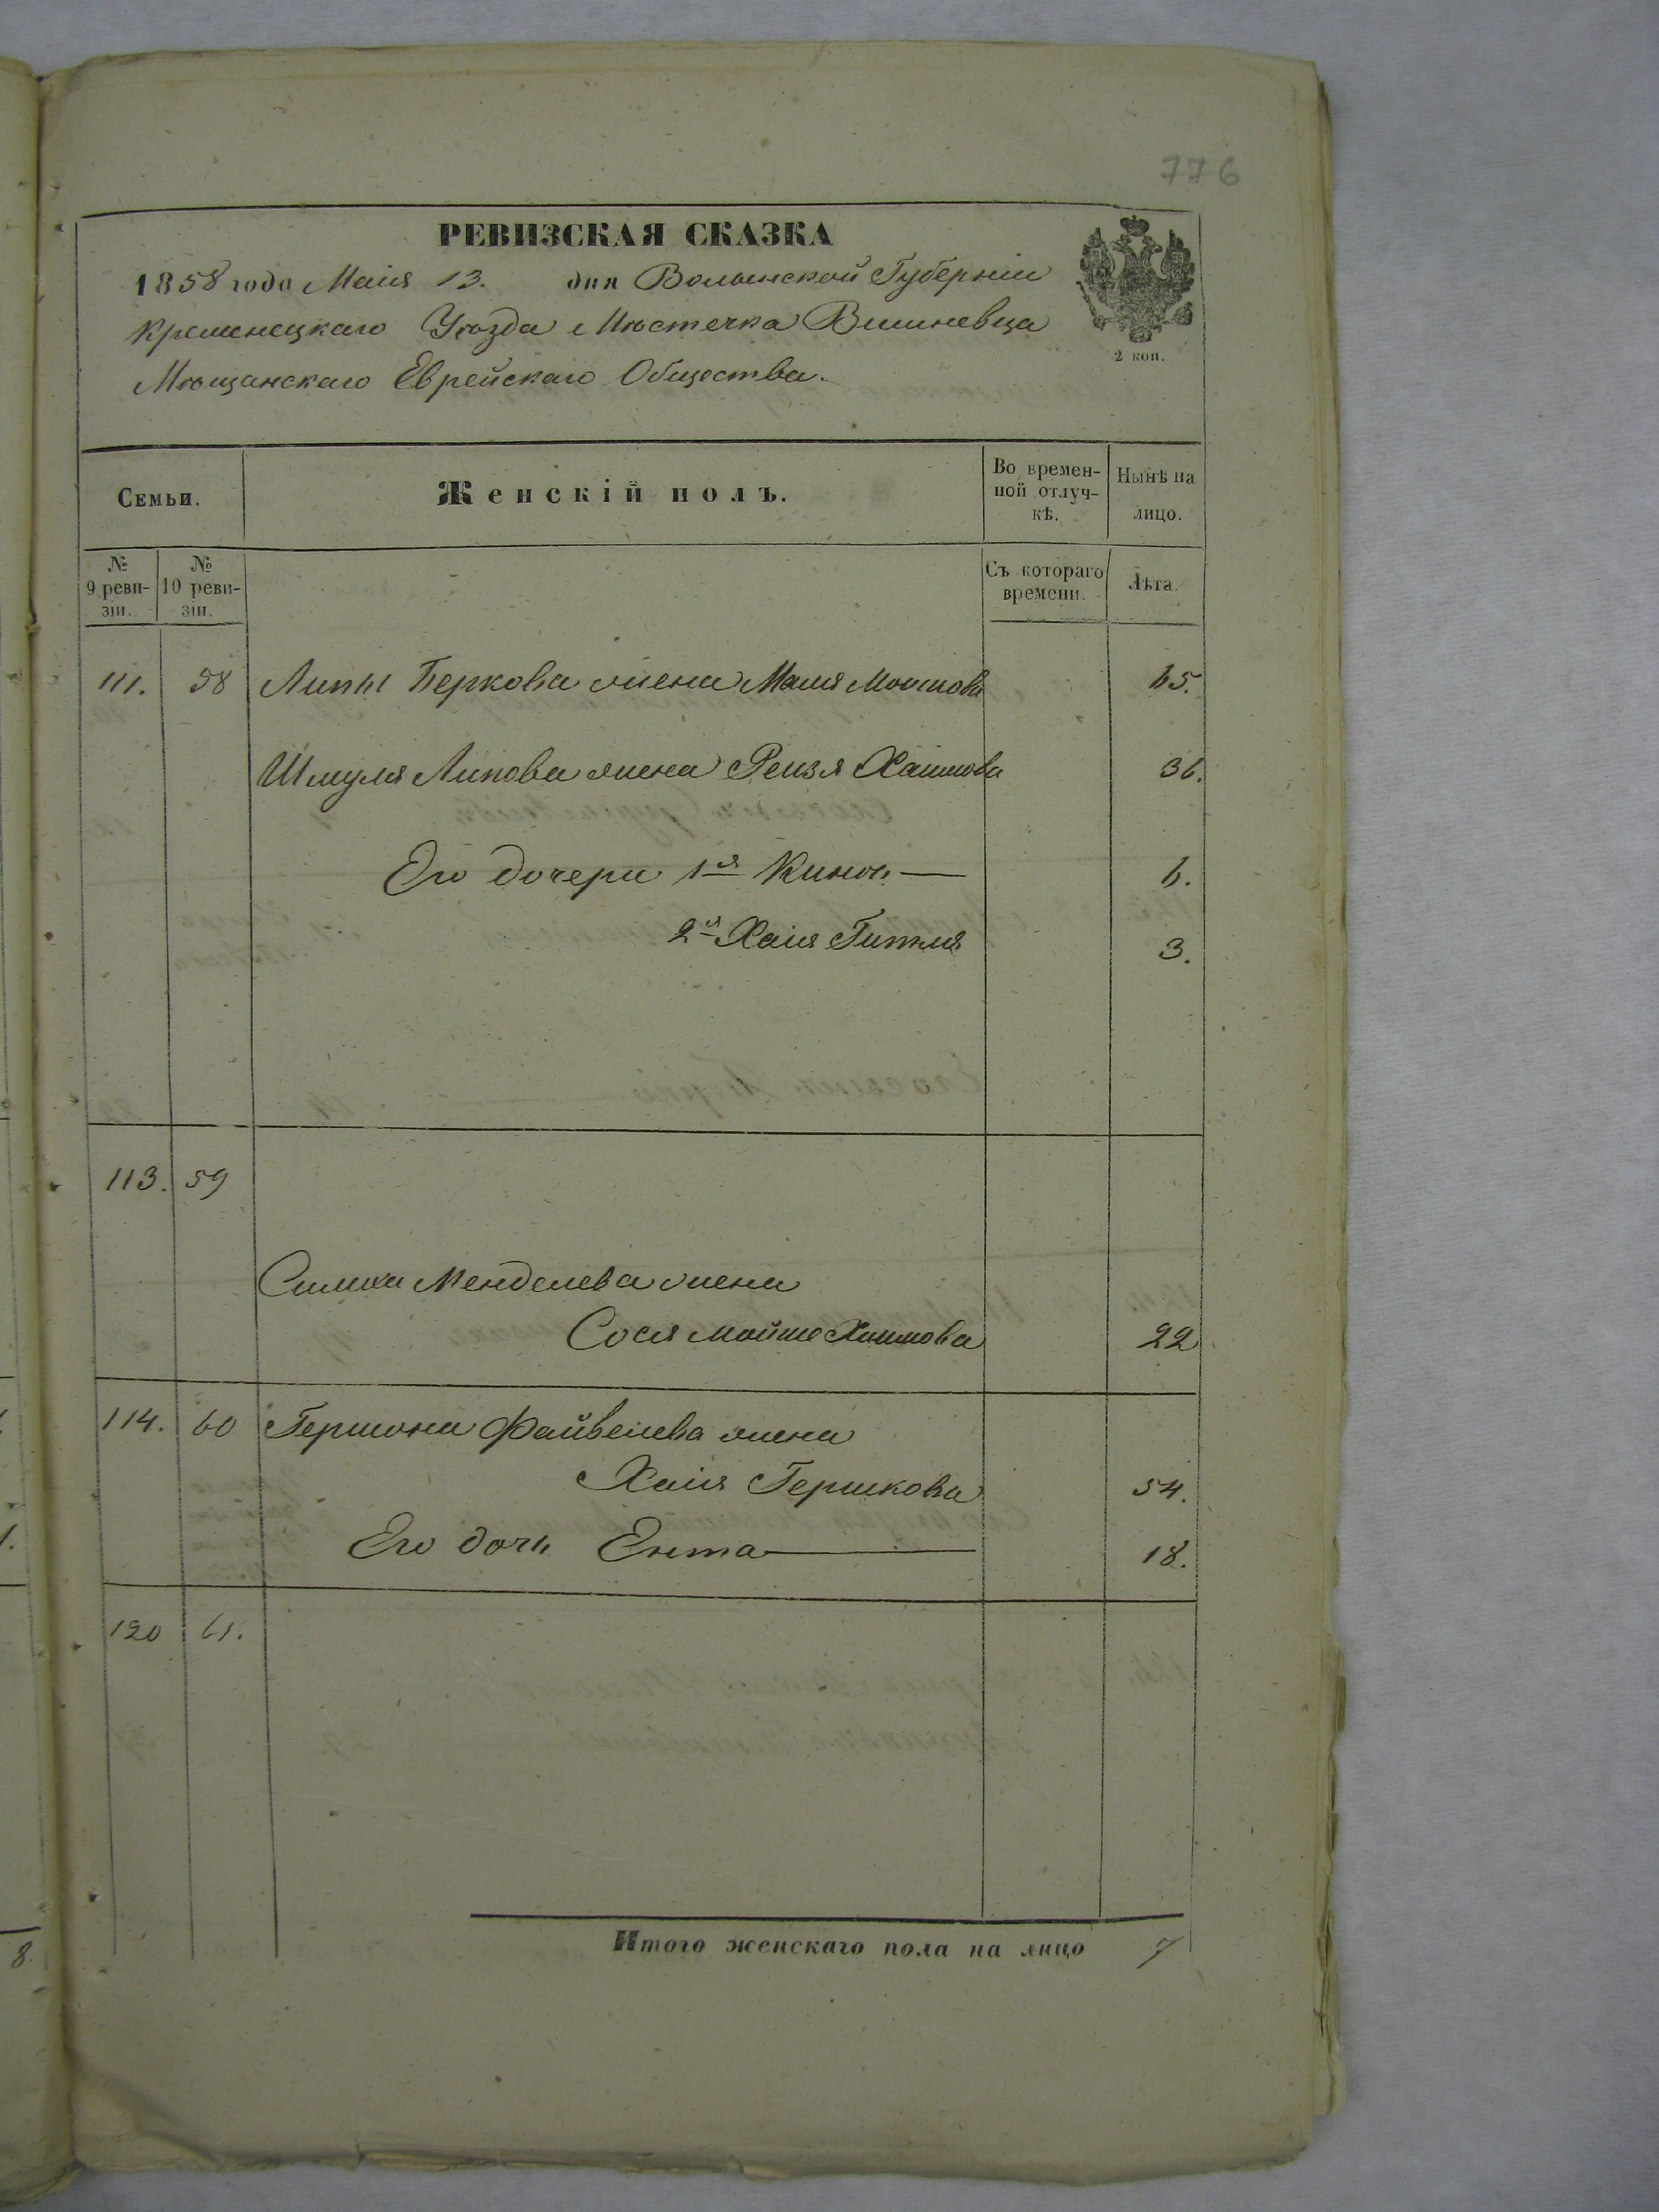 776
РЕВИЗСКАЯ СКАЗКА
1858 года Маія 13. дня Волынской Губерніи
Кременецкаго Уѣзда Мѣстечка Вишневца
Мѣщанскаго Еврейскаго Общества.
2 коп.
Семьи. Женскій полъ. Во времен-ной отлуч-кѣ. Нынѣ на лицо.
№ 9 реви-зіи. № 10 реви-зіи. Съ котораго времени. Лѣта.
111. 58 Липы Беркова жена Маля Мошкова 65.
Шмуля Липова жена Рейзя Хаимова 36.
Его дочери 1я 6.
2я Хаия Гитля 3.
113. 59
Симхи Менделева жена
Сося Мойше Хаимова 22
114. 60 Гершона Файвелева жена
Хаия Гершкова 54.
Его дочь Ента 18.
120 61.
Итого женскаго пола на лицо 7
8.